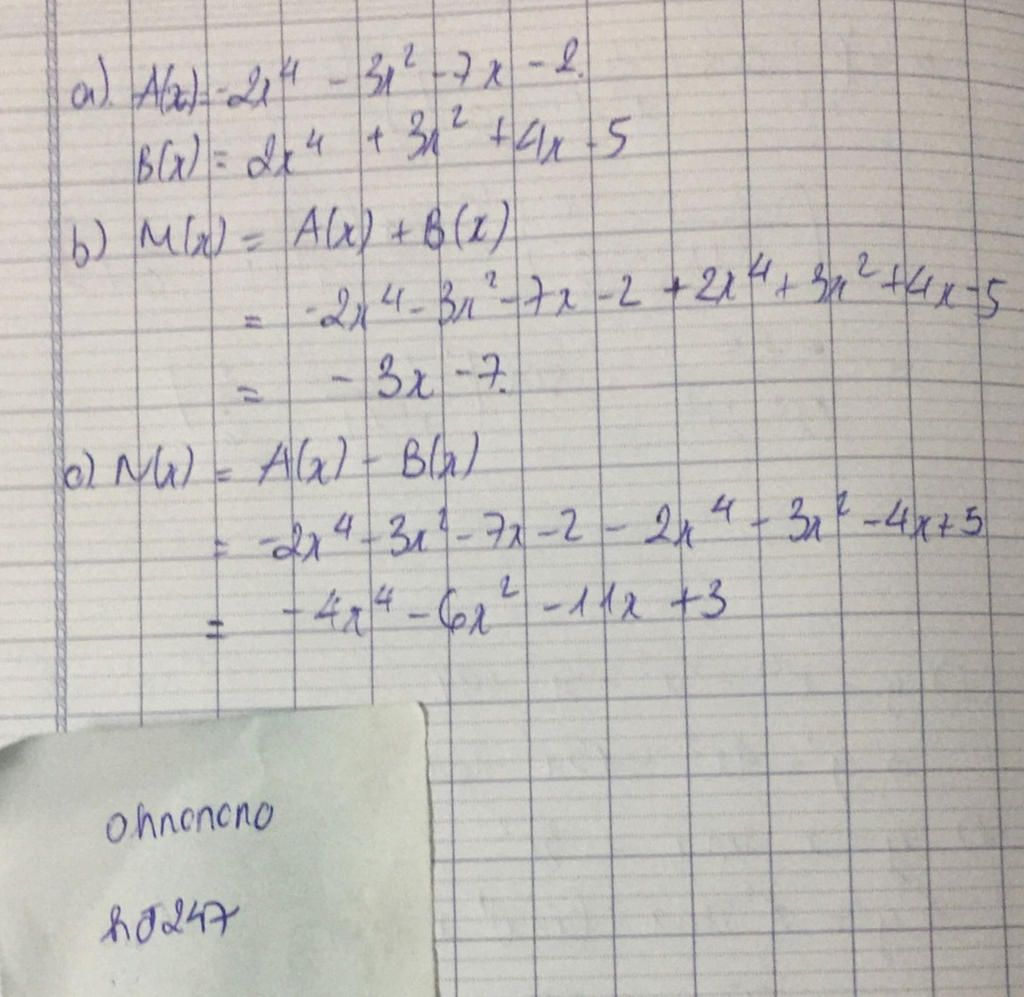 a). A(x) = -2x⁴ - 3x² - 7x - 2.
B(x) = 2x⁴ + 3x² + 4x - 5
b) M(x) = A(x) + B(x)
= -2x⁴ - 3x² - 7x - 2 + 2x⁴ + 3x² + 4x - 5
= - 3x - 7.
c) N(x) = A(x) - B(x)
= -2x⁴ - 3x² - 7x - 2 - 2x⁴ - 3x² - 4x + 5
= - 4x⁴ - 6x² - 11x + 3
ohnonono
h̵σ247